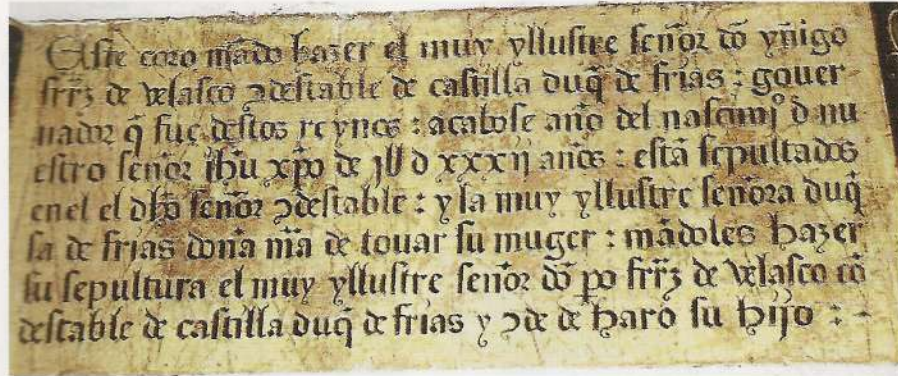 Este coro mãdo hazer el muy yllustre señor dõ yñigo
frrz de velasco ↄdestable de castilla duq̃ de frias : gouer
nador q̃ fue destos reynos : acabose año del nascimj̊ d nu
estro señor jhũ xp̃o de jU d xxxij años : estã sepultados
enel el dho señor ↄdestable : y la muy yllustre señora duq̃
sa de frias doña mã de touar su muger : mãdoles hazer
su sepultura el muy yllustre señor dõ po frrz de velasco cõ
destable de castilla duq̃ de frias y ↄde de haro su hijo :